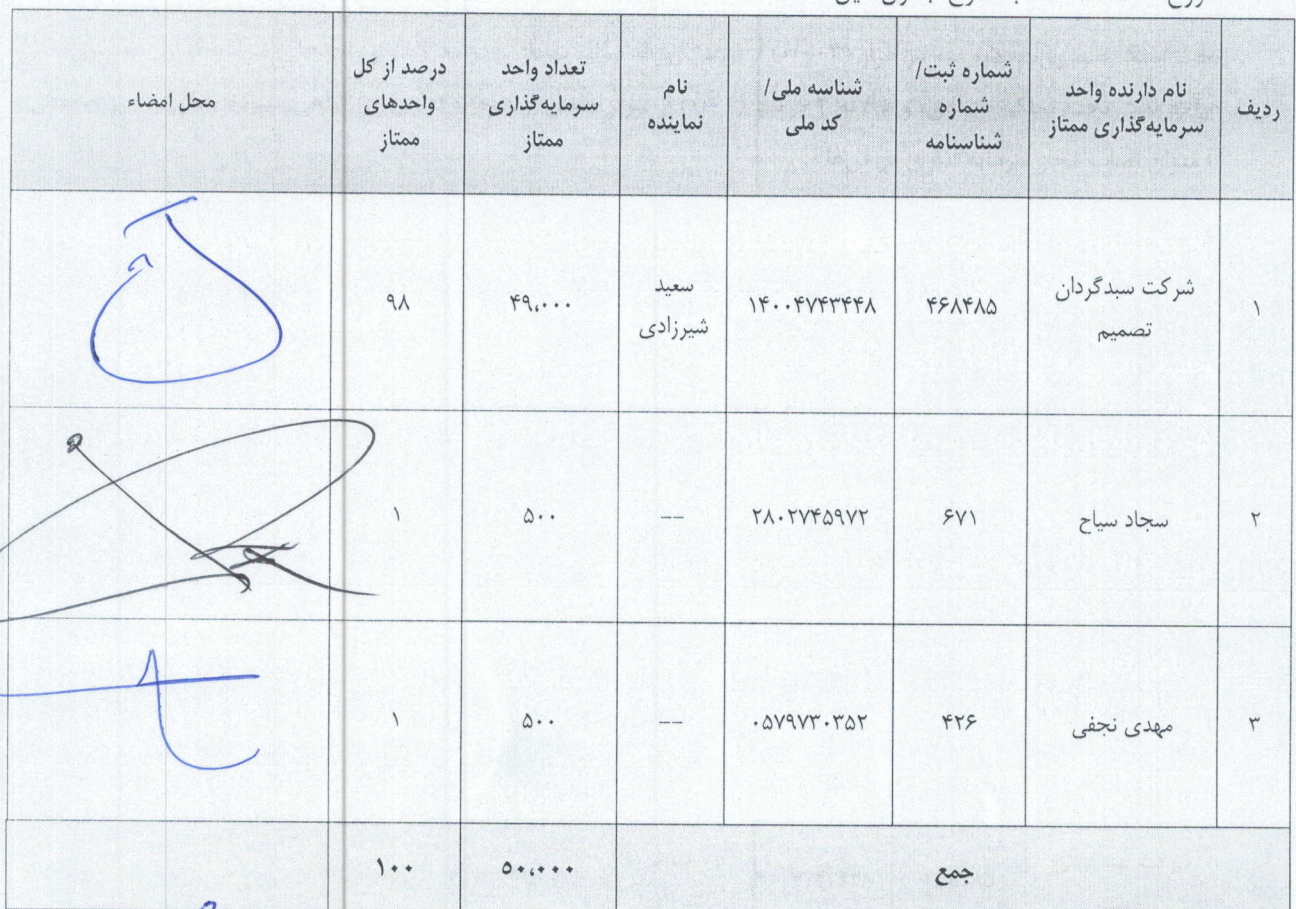 ردیف
نام دارنده واحد
سرمایه‌گذاری ممتاز
شماره ثبت/
شماره
شناسنامه
شناسه ملی/
کد ملی
نام
نماینده
تعداد واحد
سرمایه‌گذاری
ممتاز
درصد از کل
واحدهای
ممتاز
محل امضاء
۱
شرکت سبدگردان
تصمیم
۴۶۸۴۸۵
۱۴۰۰۴۷۴۳۴۴۸
سعید
شیرزادی
۴۹،۰۰۰
۹۸
۲
سجاد سیاح
۶۷۱
۲۸۰۲۷۴۵۹۷۲
---
۵۰۰
۱
۳
مهدی نجفی
۴۲۶
۰۵۷۹۷۳۰۳۵۲
---
۵۰۰
۱
جمع
۵۰،۰۰۰
۱۰۰